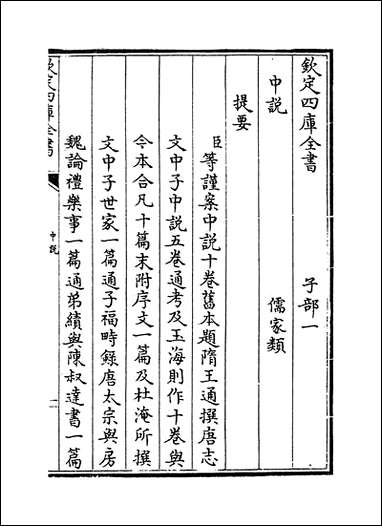 欽定四庫全書　子部一
中說　儒家類
提要
臣等謹案中說十卷舊本題隋王通撰唐志
文中子中說五卷通考及玉海則作十卷與
今本合凡十篇末附序文一篇及杜淹所撰
文中子世家一篇通子福畤錄唐太宗與房
魏論禮樂事一篇通弟績與陳叔達書一篇
欽定四庫全書
中說
一